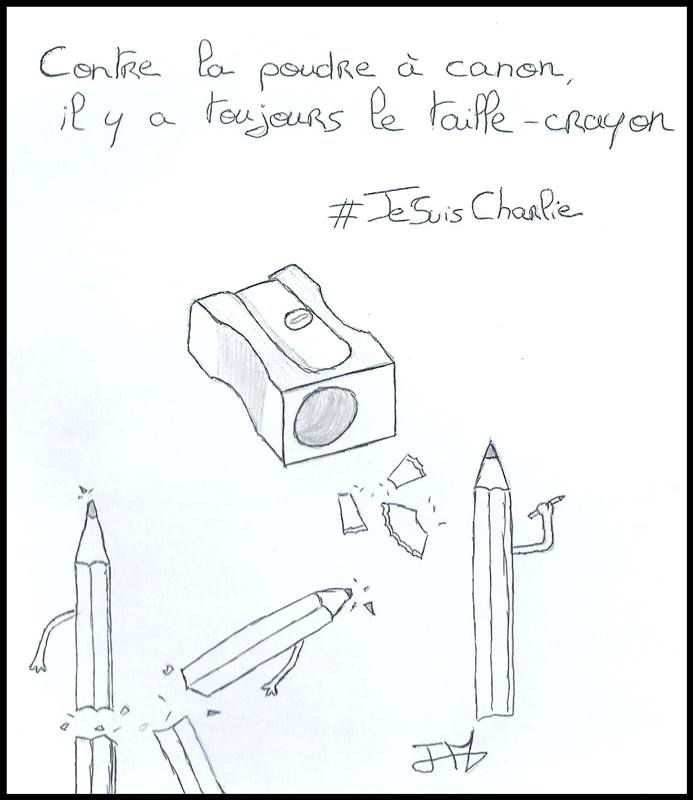 Contre la poudre à canon,
il y a toujours le taille-crayon
#JeSuisCharlie